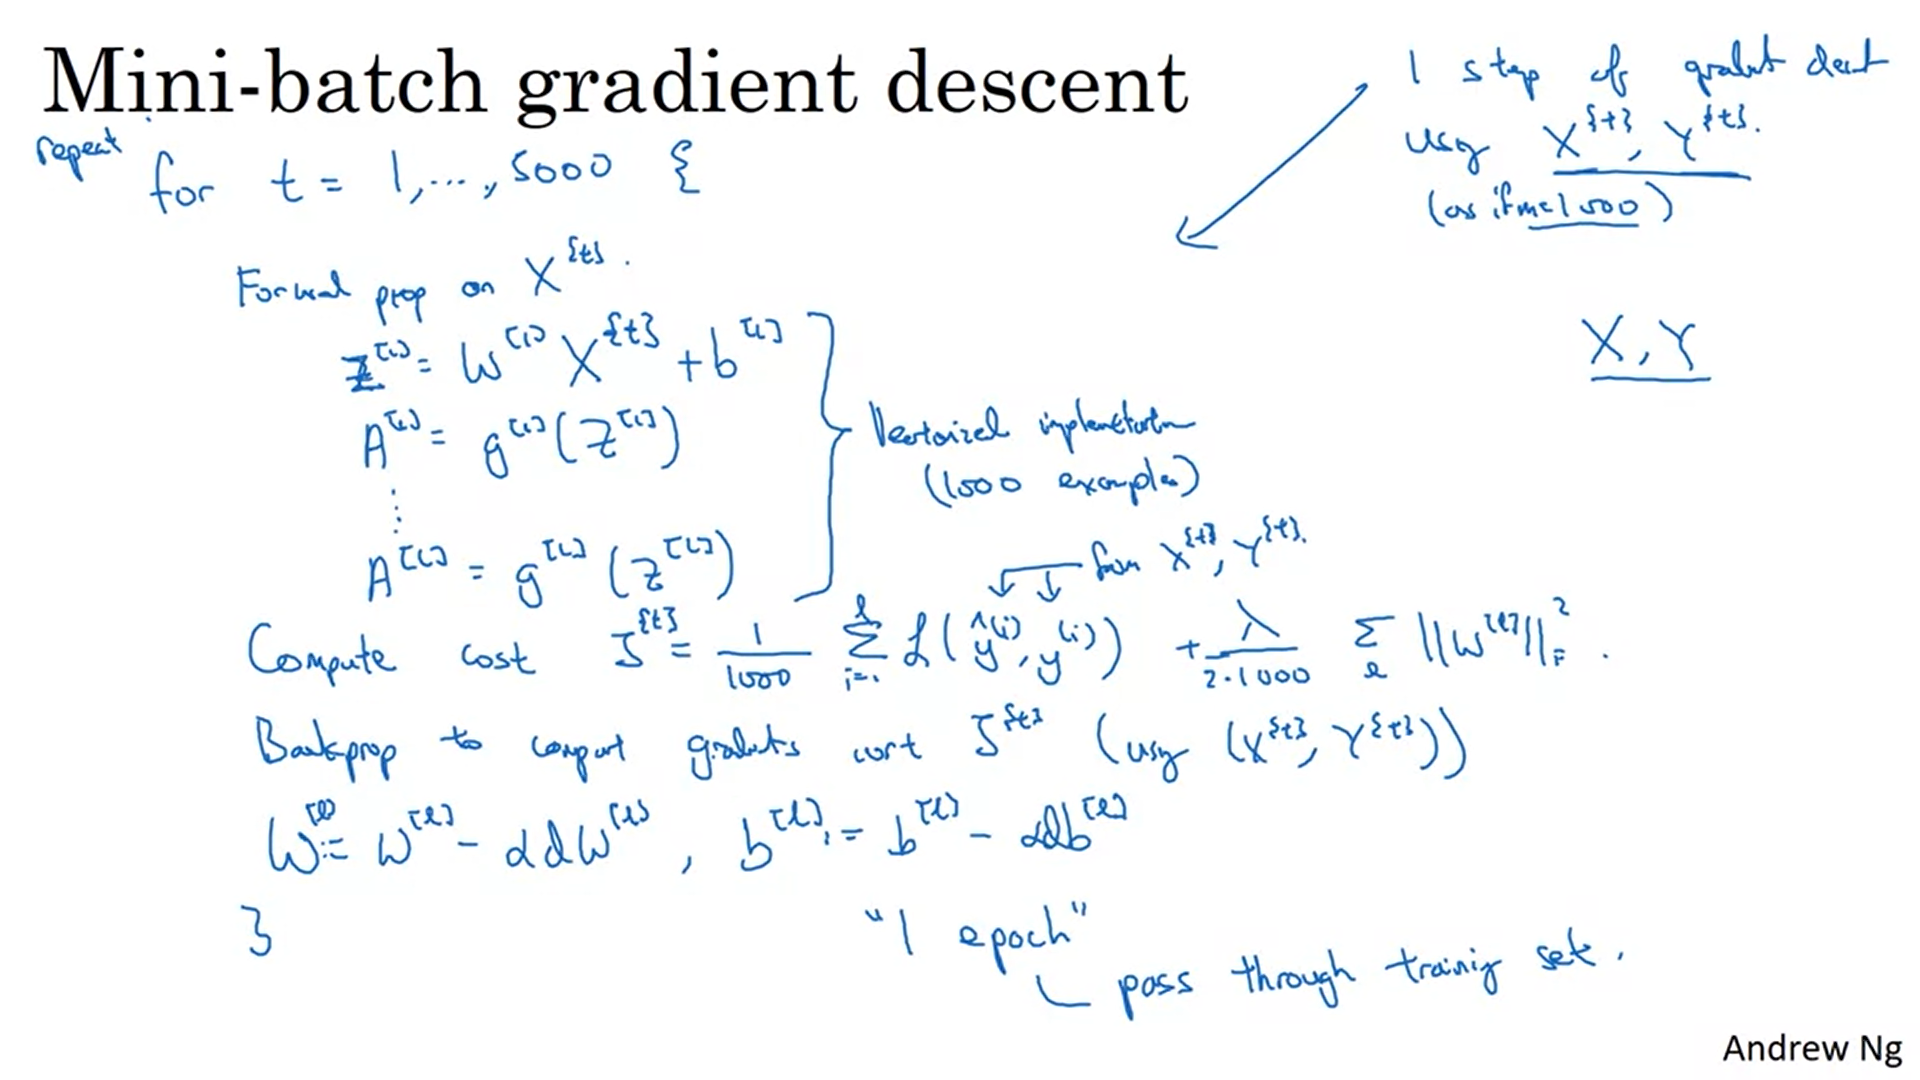 Mini-batch gradient descent
repeat
for t = 1,..., 5000 {
1 step of gradient descent
using X^{t}, Y^{t}.
(as if m=1000)
Forward prop on X^{t}.
Z^[1] = W^[1] X^{t} + b^[1]
A^[1] = g^[1] (Z^[1])
⋮
A^[L] = g^[L] (Z^[L])
Vectorized implementation
(1000 examples)
X, Y
from X^{t}, Y^{t}.
Compute cost J^{t} = 1/1000 Σ_{i=1}^{l} L(ŷ^(i), y^(i)) + λ/(2·1000) Σ_l ||W^[l]||_F^2.
Backprop to compute gradients wrt J^{t} (using (X^{t}, Y^{t}))
W^[l] := W^[l] - αdW^[l], b^[l] := b^[l] - αdb^[l]
}
"1 epoch"
pass through training set.
Andrew Ng